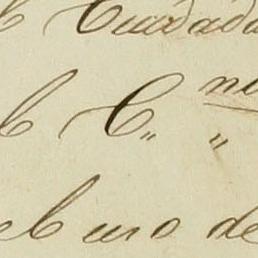 el Ciudada
el C„ „ no
el uso de